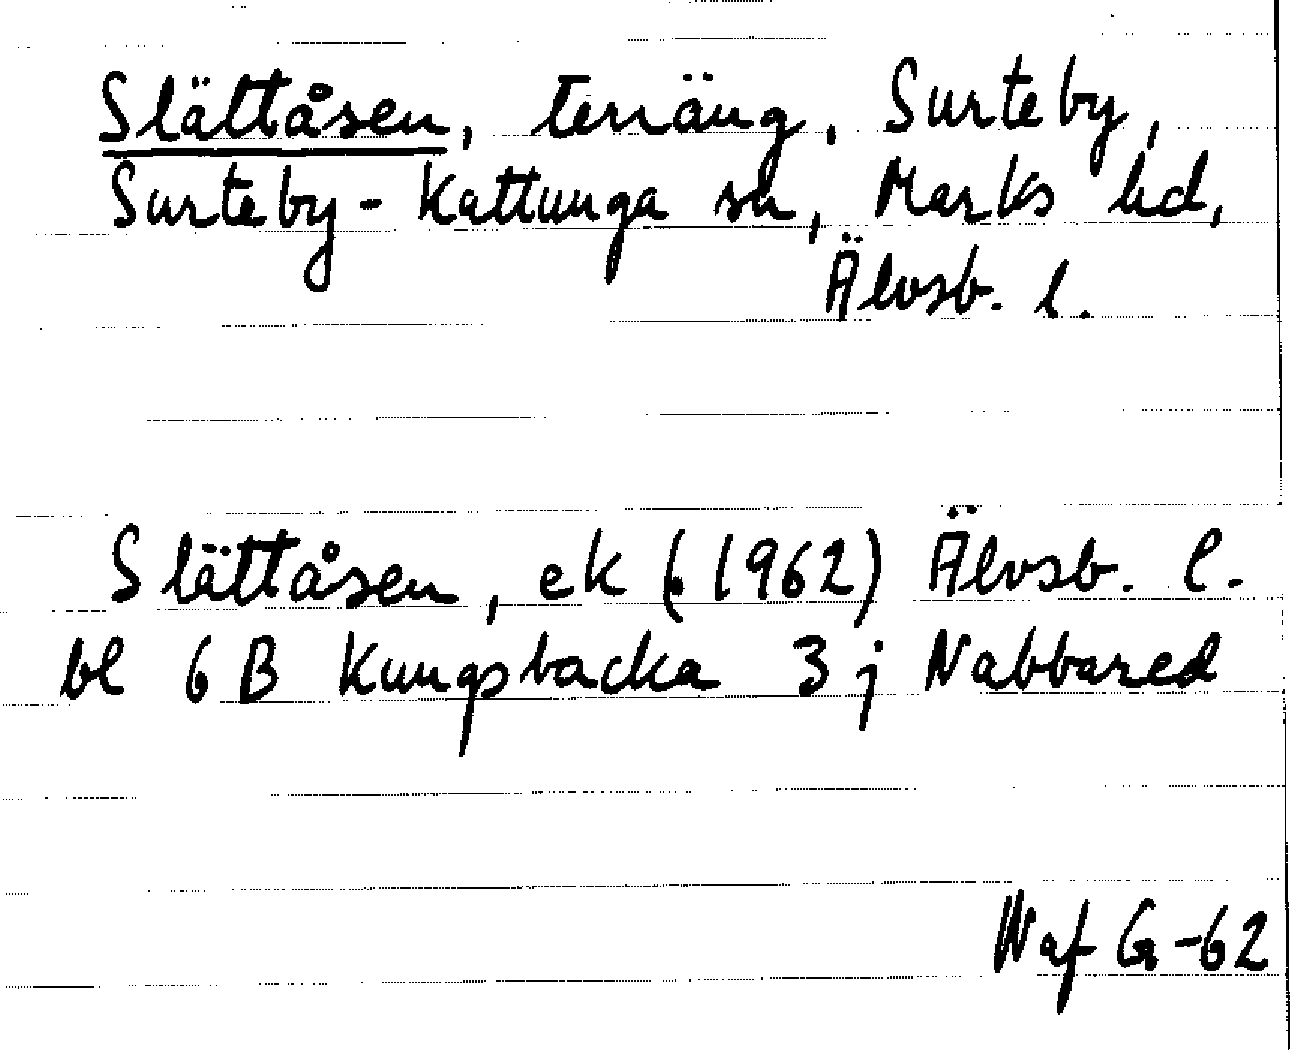 Slättåsen, terräng, Surteby,
Surteby-Kattunga sn, Marks hd,
Älvsb. l.
Slättåsen, ek (1962) Älvsb. l.
bl 6 B Kungsbacka 3 j Nabbared
Naf G-62